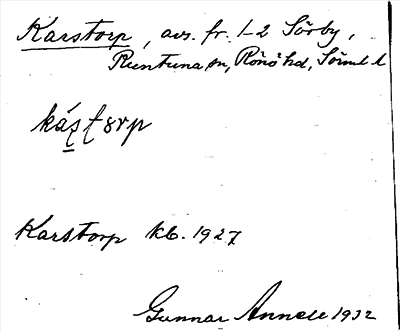 Karstorp, avs. fr. 1-2 Sörby,
Runtuna sn, Rönö hd, Sörml. l.
Karstorp kb. 1927
Gunnar Annell 1932